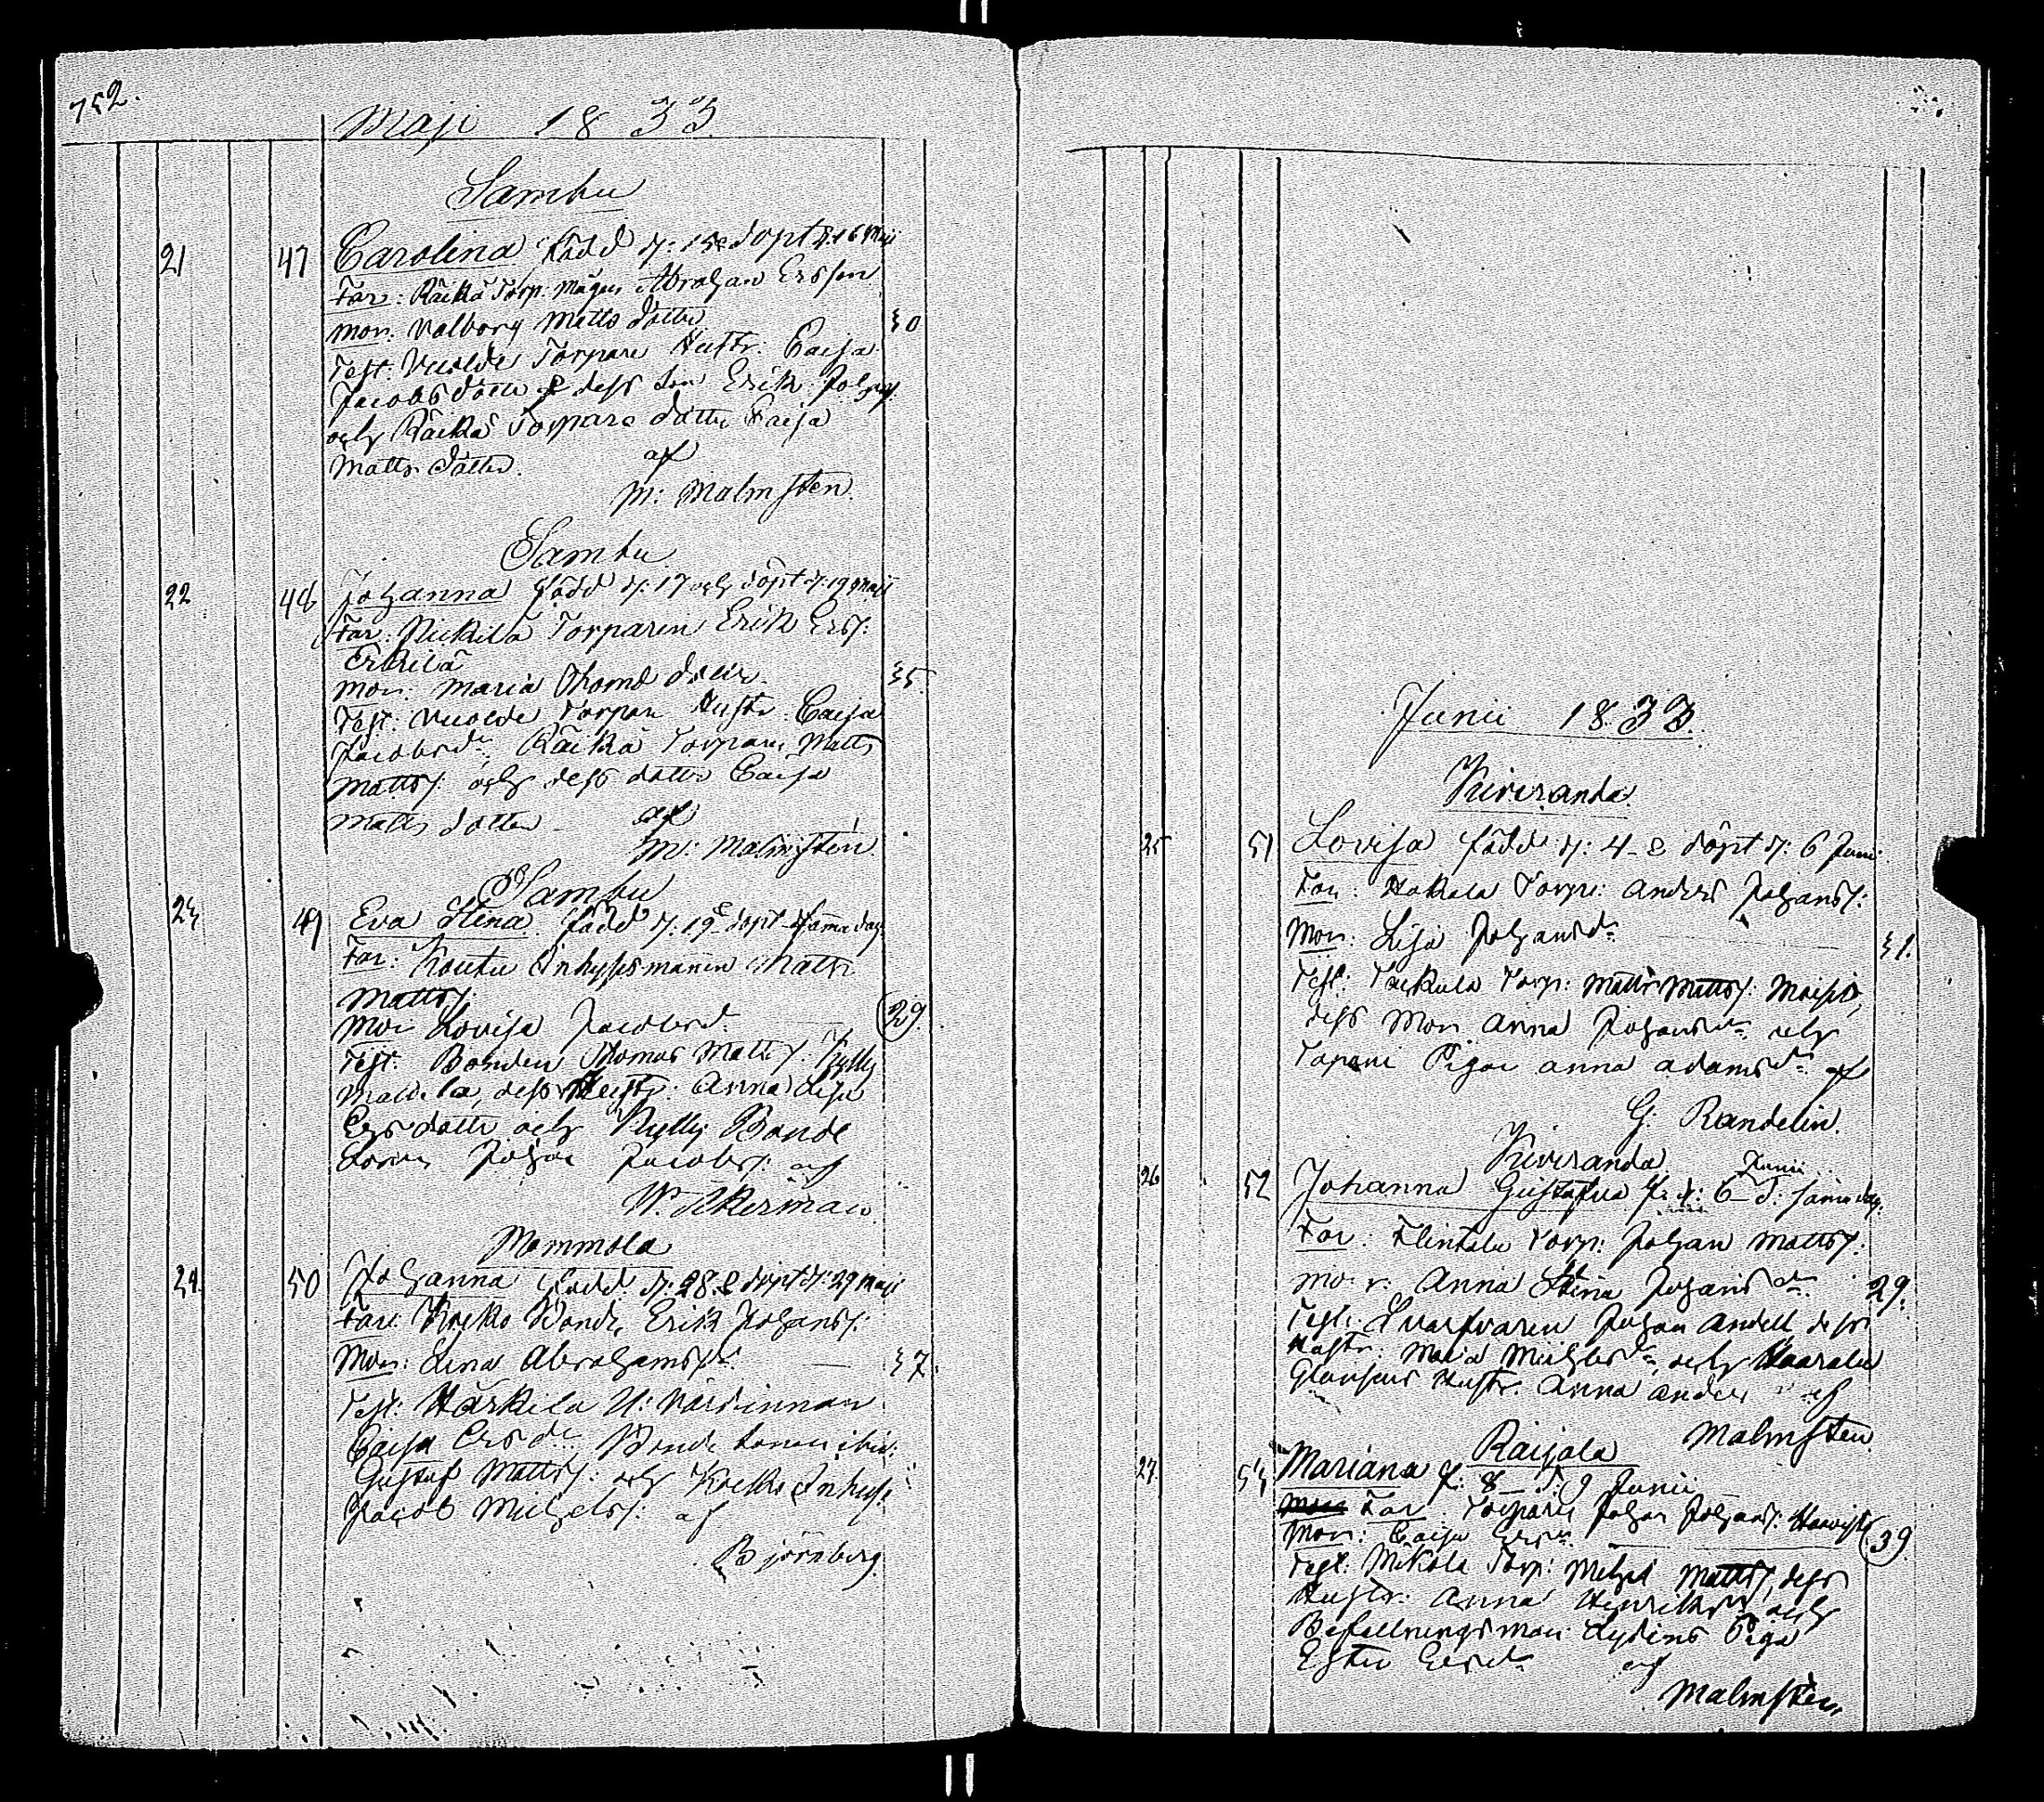 752.
Maji 1833
Sambu
21 47 Carolina född d: 15 e döpt d: 16 Maji
Far: Räikä Torp: Mågen Abraham Ersson
Mor: Valborg Matts dotter 30
Test: Torpare Hustr: Caisa
Jacobs dotter & dess Son Erik Johans:
och Räikä Torpare dotter Caisa
Matts dotter. af
M: Malmsten.
Sambu
22 48 Johanna född d: 17 och döpt d: 19 Maji
Far: Torparen Erik Ers:
Erkilä
Mor: Maria Thoms doter 35.
Test: Torpare Hustr: Caisa
Jacobsdr Räikä Torpare Matts
Matts: och dess dotter Caisa
Matts dotter af
M: Malmsten.
Sambu
23 49 Eva Stina född d: 19 e döpt samma dag
Far: Inhysesmannen Matts
Matts:
Mor Lovisa Jacobsd. 29.
Test: Bonden Thomas Matts:
dess Hustr: Anna Lisa
Ers dotter och Bonde
Sonen Johan Jacobs: af
W. Åkerman
Mommola
24. 50 Johanna född d: 28. e döpt d: 29 Maji
Far: Bonde, Erik Johans:
Mor: Lena Abrahamsdr. 37.
Test: Härkilä U: Värdinnan
Caisa Ers dr Bonde Sonen ibid:
Gustaf Matts: och Inhys:
Jacob Michels: af
Björnberg.
Junii 1833.
Kiviranda.
25 51 Lovisa född d: 4 e döpt d: 6 Juni.
Far: Hakala Torpn: Anders Johans:
Mor: Lisa Johansdr 31.
Test: Torp: Matts Matts:
dess Mor Anna Johansdr och
Tapani Pigan Anna Adamsdr af
G: Randelin.
Kiviranda. Junii
26 52 Johanna Gustafva f. d: 6 d: samma dag.
Far: Flinkala Torp: Johan Matts:
Mor: Anna Stina Johansdr. 29.
Test: Johan Andell dess
Hustr: Maria Michelsdr och
Hustr. Anna Anders af
Malmsten.
Raijala
27 53 Mariana f: 8 d: 9 Junii
Far: Torparen Johan Johans: 39.
Mor: Caisa
Test: Mikola Torp: Michel Matts:, dess
Hustr: Anna Henriksdr och
Befallningsman Piga
Ester af
Malmsten.